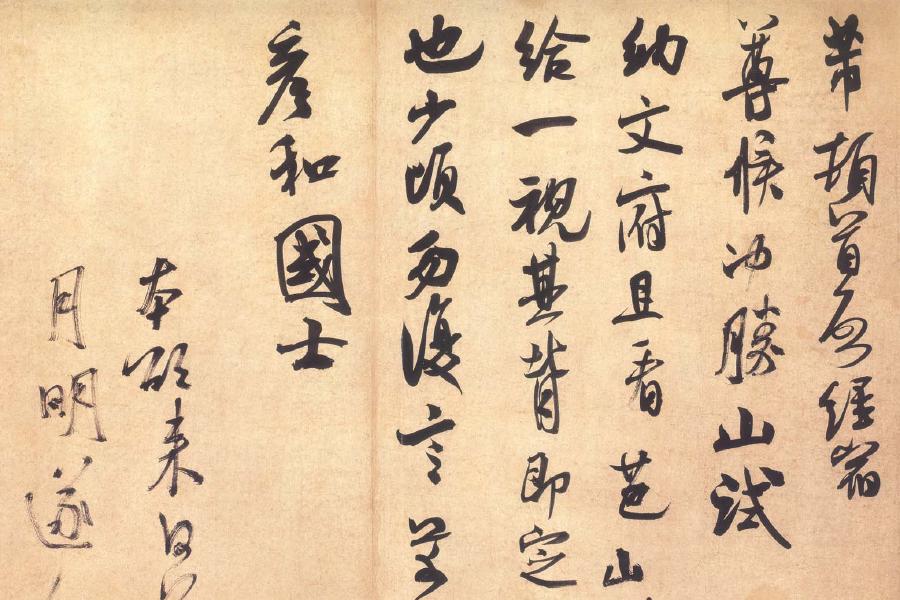 芾頓首啟經宿
尊候沖勝山試
納文府且看芭山
給一視其背即定
也少頃勿復言芾
彥和國士
本欲來日
月明遂